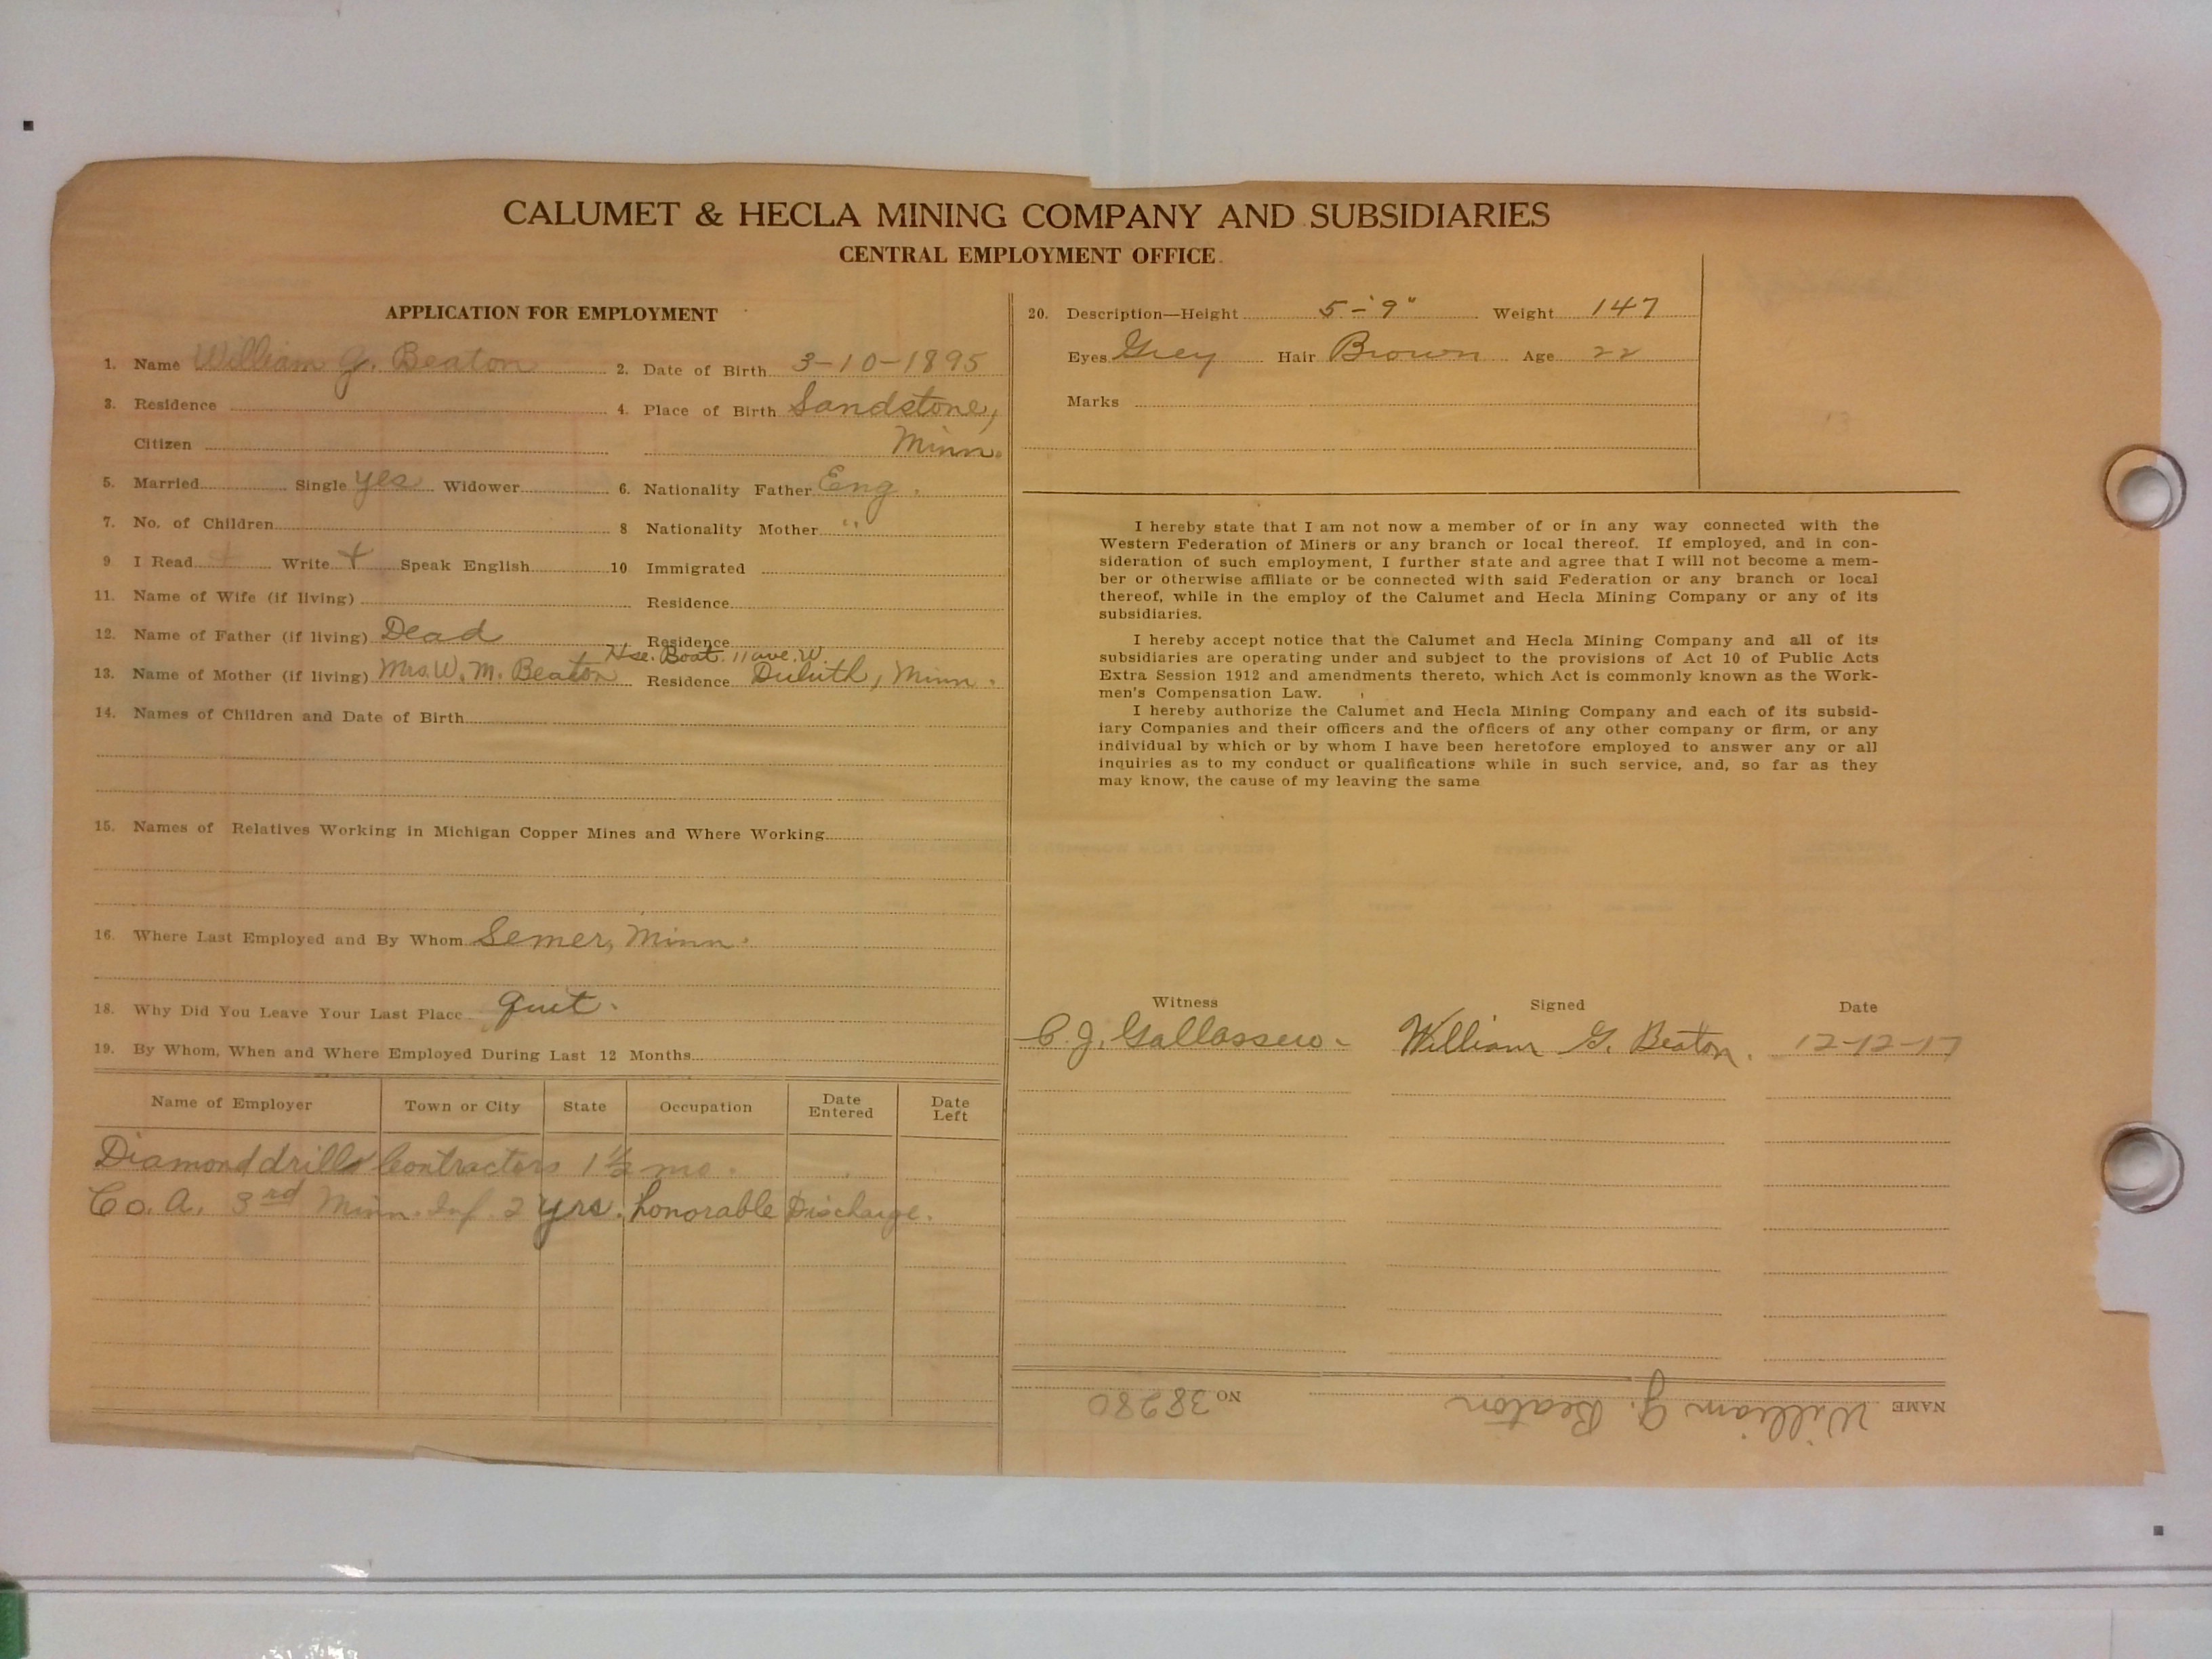 CALUMET & HECLA MINING COMPANY AND SUBSIDIARIES
CENTRAL EMPLOYMENT OFFICE.
APPLICATION FOR EMPLOYMENT
1. Name William G. Beaton 2. Date of Birth 3-10-1895
3. Residence 4. Place of Birth Sandstone,
Citizen Minn.
5. Married Single yes Widower 6. Nationality Father Eng.
7. No. of Children 8 Nationality Mother "
9 I Read + Write + Speak English 10 Immigrated
11. Name of Wife (if living) Residence
12. Name of Father (if living) Dead Residence
Hse. Boat. 11 ave. W.
13. Name of Mother (if living) Mrs. W. M. Beaton Residence Duluth, Minn.
14. Names of Children and Date of Birth
15. Names of Relatives Working in Michigan Copper Mines and Where Working
16. Where Last Employed and By Whom Semer, Minn.
18. Why Did You Leave Your Last Place quit.
19. By Whom, When and Where Employed During Last 12 Months
Name of Employer Town or City State Occupation Date Entered Date Left
Diamond drills Contractors 1 1/2 mo.
Co. A. 3rd Minn. Inf. 2 yrs. honorable Discharge.
20. Description—Height 5-'9" Weight 147
Eyes Grey Hair Brown Age 22
Marks
I hereby state that I am not now a member of or in any way connected with the
Western Federation of Miners or any branch or local thereof. If employed, and in con-
sideration of such employment, I further state and agree that I will not become a mem-
ber or otherwise affiliate or be connected with said Federation or any branch or local
thereof, while in the employ of the Calumet and Hecla Mining Company or any of its
subsidiaries.
I hereby accept notice that the Calumet and Hecla Mining Company and all of its
subsidiaries are operating under and subject to the provisions of Act 10 of Public Acts
Extra Session 1912 and amendments thereto, which Act is commonly known as the Work-
men's Compensation Law.
I hereby authorize the Calumet and Hecla Mining Company and each of its subsid-
iary Companies and their officers and the officers of any other company or firm, or any
individual by which or by whom I have been heretofore employed to answer any or all
inquiries as to my conduct or qualifications while in such service, and, so far as they
may know, the cause of my leaving the same
Witness Signed Date
C. J. William G. Beaton. 12-12-17
NAME William G. Beaton NO 38280